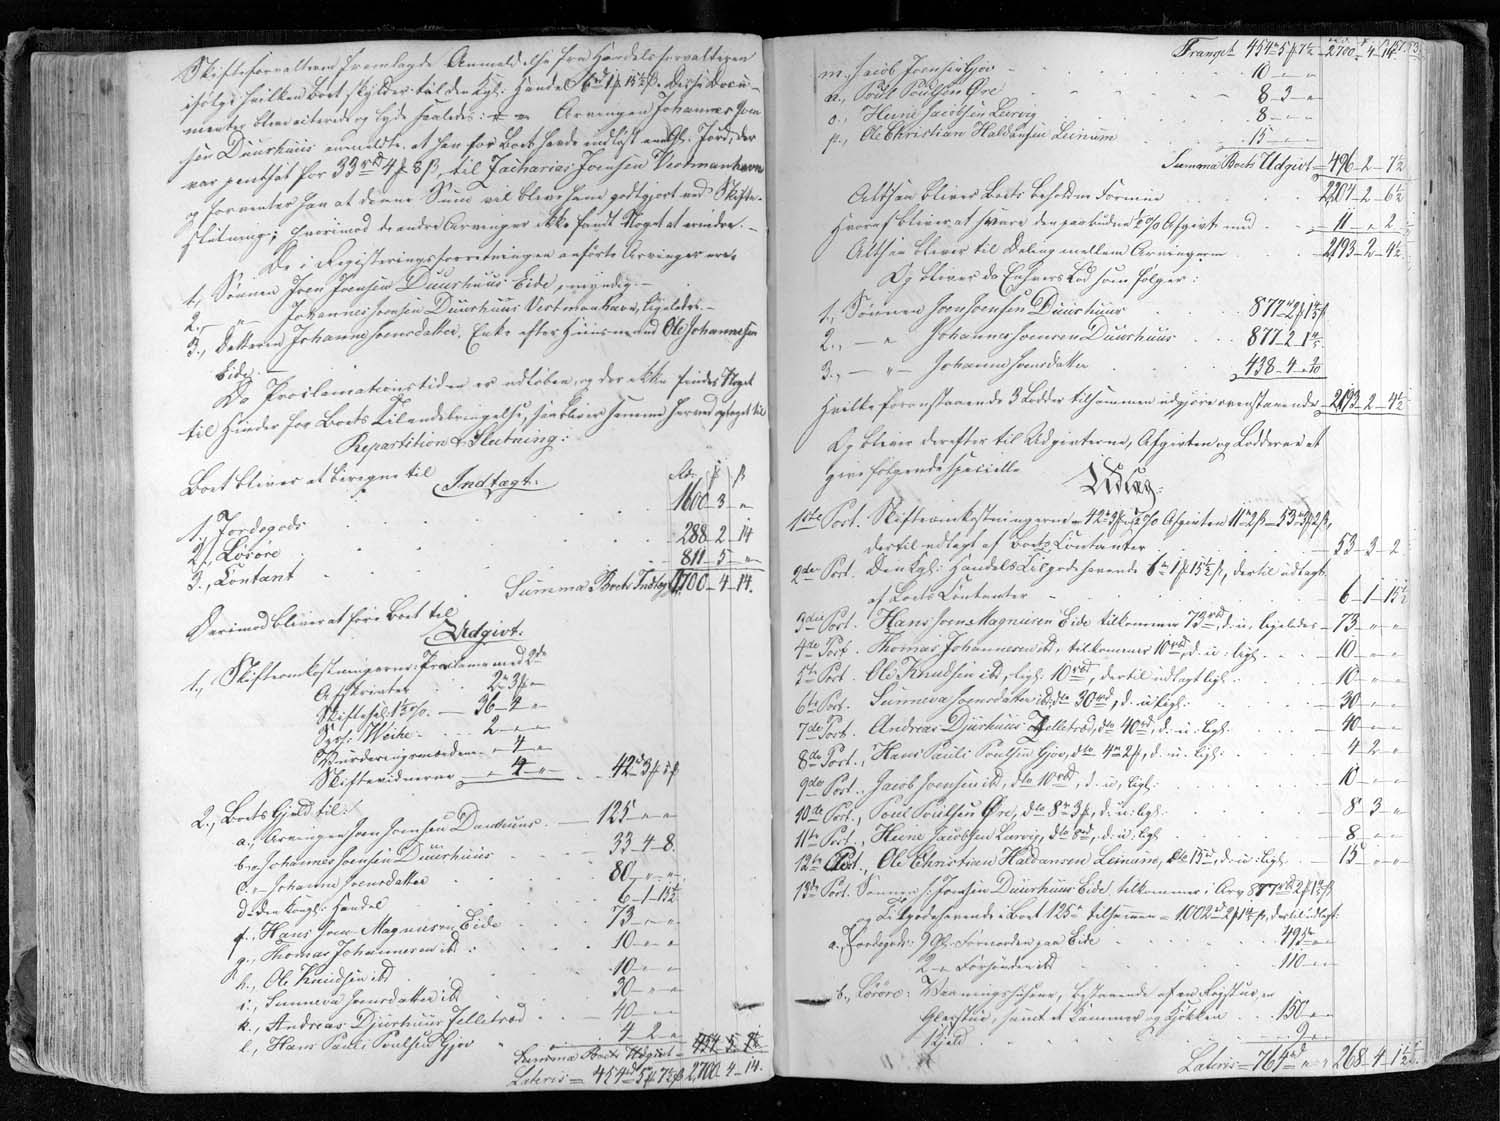 Skifteforvalteren fremlagde Anmeldelse fra Handelsforvalteren
ifølge hvilken Boet skylder til den Kgl: Handel 6 rd 1 ƒ 15½ ß. Disse Docu-
menter bleve citerede og lyde saaledes: Arvingen Johannes Joen-
sen Duurhuus anmeldte, at han for Boet havde indløst Jord, der
var pantsat for 33 rbd 4 ƒ 8 ß, til Zacharias Joensen Vestmanhavn
og forventer han at denne Sum vil blive ham godtgjort ved Skifte-
slutning; hvorimod de andre Arvinger ikke fandt Noget at erindre. -
De i Registeringsforretningen anførte Arvinger ere:
1, Sønnen Joen Joensen Duurhuus Eide, myndig. -
2, - " - Johannes Joensen Duurhuus Vestmanhavn, ligeledes. -
3., Datteren Johanne Joensdatter, Enke efter Huusmand Ole Johannesen
Eide. -
Da Proclamationstiden er udløben, og der ikke findes Noget
til Hinder for Boets Tilendebringelse, saa bliver samme herved optaget til
Repartition & Slutning:
Boet bliver at beregne til Indtægt: Rd. ƒ ß
1, Jordegods . . . 1600 - 3 - "
2, Løsøre . . . 288 - 2 - 14
3., Contant . . . 811 - 5 - "
Summa Boets Indtægt 2700 - 4 - 14.
Derimod bliver at føre Boet til
Udgivt:
1., Skifteomkostningerne: Proclama med 2de
Afskrivter . . 2 - 3 ƒ "
Skiftesal: 1⅓ %. - 36 - 2 - "
Syssl: Weihe . . 2 - " - "
Vurderingsmændene " - 4 - "
Skiftevidnerne " - 4 - " . . 42 rd 3 ƒ " ß
2., Boets Gjeld til:
a., Arvingen Joen Joensen Duurhuus . - 125 - " - "
b., " Johannes Joensen Duurhuus . . 33 - 4 - 8.
c. " Johanne Joensdatter . . . 80 - " - "
d. den Kongl: Handel . . . 6 - 1 - 15½
f., Hans Joen Magnusen Eide . . 73 - " - "
g., Thomas Johannesen ibd: . . 10 - " - "
h., Ole Knudsen ibd . . . 10 - " - "
i., Sunneva Joensdatter ibd . . . 30 - " - "
k., Andreas Djurhuus Telletræd . . - 40 - " - "
l., Hans Pauli Poulsen Gjov . . . 4 - 2 - "
Summa Boets Udgivt - 454 5 7½
Lateris = 454 rd 5 ƒ 7½ ß 2700 - 4 - 14.
Transpt 454 rd 5 ƒ 7½ - 2700 - 4 - 14
m., Jacob Joensen Gjov - - - 10 - " - "
n., Poul Poulsen Øre - - - 8 - 3 - "
o., Heine Jacobsen Leervig . . 8 - " - "
p., Ole Christian Haldansen Leinum . . 15 - " - "
Summa Boets Udgivt - 496 - 2 - 7½
Altsaa bliver Boets beholdne Formue . . . 2204 - 2 - 6½
Hvoraf bliver at svare den paabudne ½ % Afgivt med . . - 11 - " - 2
Altsaa bliver til Deling mellem Arvingerne . . . 2193 - 2 - 4½
Og bliver da Enhvers Lod som følger:
1., Sønnen Joen Joensen Duurhuus . . 877 rd 2 ƒ 1⅘ ß
2., - " Johannes Joensen Duurhuus . . . 877 - 2 - 1⅘
3., - " - Johanne Joensdatter . . . 438 - 4 -
Hvilke foranstaaende 3 Lodder tilsammen udgjøre ovenstaaende 2193 - 2 - 4½
Og bliver derefter til Udgivterne, Afgivten og Lodderne at
giøre følgende specielle
Udlæg:
1ste Post. Skifteomkostningerne = 42 rd 3 ƒ og ½ % Afgivten 11 rd 2 ß = 53 rd 3 ƒ 2 ß,
dertil udlagt af Boets Contanter . . . . - 53 - 3 - 2
2den Post. Den Kgl: Handels Tilgodehavende 6 rd 1 ƒ 15½ ß, dertil udlagt
af Boets Contanter - . . . . - 6 - 1 - 15½
3die Post. Hans Joen Magnusen Eide tilkommer 73 rbd, d: u: ligeledes - 73 - " - "
4de Post. Thomas Johannesen ibd., tilkommer 10 rbd, d: u: ligl: . . . - 10 - " - "
5te Post. Ole Knudsen ibd, ligl: 10 rbd, dertil udlagt ligl: . . . - 10 - " - "
6te Post. Sunneva Joensdatter ibd, dto 30 rbd, d: u: ligl: . . . - 30 - " - "
7de Post. Andreas Djurhuus Telletræd, dto 40 rd, d: u: ligl: . . . - 40 - " - "
8de Post., Hans Pauli Poulsen Gjov, dto 4 rd 2 ƒ, d. u: ligl: . . 4 - 2 - "
9de Post., Jacob Joensen ibd, dto 10 rbd, d. u, ligl: . . . 10 - " - "
10de Post., Poul Poulsen Øre, dto 8 rd 3 ƒ, d: u: ligl: . . . - 8 - 3 - "
11te Post., Heine Jacobsen Lervig, dto 8 rd, d: u: ligl . . . 8 - " - "
12te Post., Ole Christian Haldansen Leinum, dto 15 rd, d: u: ligl: . - 15 - " - "
13de Post. Sønnen J: Joensen Duurhuus Eide, tilkommer i Arv 877 rbd 2 ƒ 1⅘ ß
og Tilgodehavende i Boet 125 rd tilsammen = 1002 rd 2 ƒ 1⅘ ß, dertil udlagt:
a., Jordegods: 9 Gl: Færnorden paa Eide . . . 495 rd " "
2 " Førsønden ibd . . . 110 - " - "
b., Løsøre: Vaaningshusene, bestaaende af en Røgstue, en
Glasstue, samt et Kammer og Kjøkken . . . 150 - " - "
1 Hjeld . . . . 9 - " - "
Lateris = 764 rd " " 268 - 4 - 1½